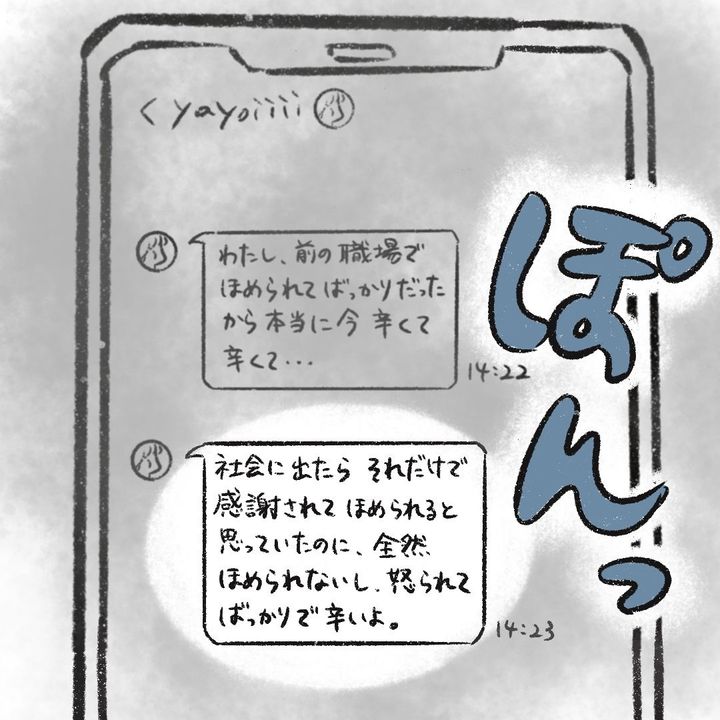 < yayoiiii
わたし、前の職場で
ほめられてばっかりだった
から本当に今 辛くて
辛くて・・・
14:22
社会に出たら それだけで
感謝されて ほめられると
思っていたのに、全然
ほめられないし、怒られて
ばっかりで辛いよ。
14:23
ぽんっ